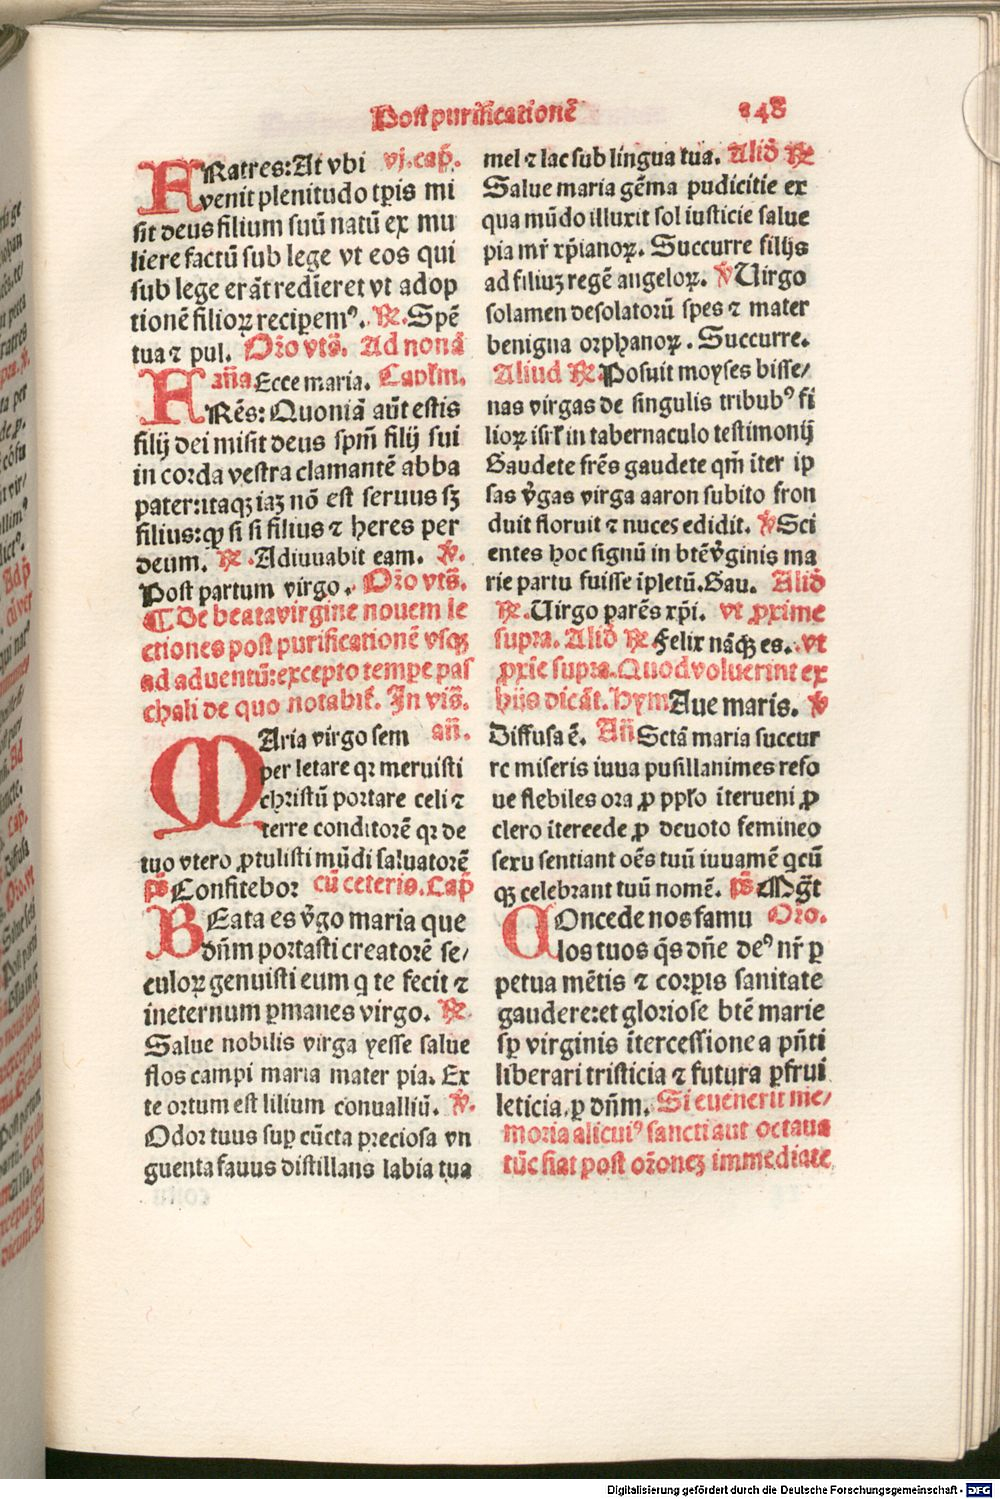 Post purificationē 148
FRatres: At vbi vj. cap̄.
venit plenitudo tp̄is mi
sit deus filium suū natū ex mu
liere factū sub lege vt eos qui
sub lege erāt redīeret vt adop
tionē filioꝝ reciperemꝰ. ℟. Spē
tua ⁊ pul. Or̄o vts̄. Ad nonā
añā Ecce maria. Capl'm.
FRēs: Quoniā aūt estis
filij dei misit deus spm̄ filij sui
in corda vestra clamantē abba
pater: itaqꝫ iaꝫ nō est seruus sꝫ
filius: ꝙ si si filius ⁊ heres per
deum. ℟. Adiuuabit eam. ℣.
Post partum virgo. Or̄o vts̄.
¶ De beata virgine nouem le
ctiones post purificationē vsqꝫ
ad aduentū: excepto tempe pas
chali de quo notabit̄. In vis̄.
MAria virgo sem añ.
per letare qꝛ meruisti
christū portare celi ⁊
terre conditorē qꝛ de
tuo vtero ꝓtulisti mūdi saluatorē
ps̄ Confitebor cū ceteris. Cap̄
BEata es v̄go maria que
dn̄m portasti creatorē se/
culoꝝ genuisti eum q te fecit ⁊
ineternum ꝑmanes virgo. ℟.
Salue nobilis virga yesse salue
flos campi maria mater pia. Ex
te ortum est lilium conualliū. ℣.
Odor tuus suꝑ cūcta preciosa vn
guenta fauus distillans labia tua
mel ⁊ lac sub lingua tua. Aliđ ℟
Salue maria gēma pudicitie ex
qua mūdo illuxit sol iusticie salue
pia mr̄ xp̄ianoꝝ. Succurre filijs
ad filiuꝫ regē angeloꝝ. ℣ Uirgo
solamen desolatorū spes ⁊ mater
benigna orphanoꝝ. Succurre.
Aliud ℟. Posuit moyses bisse/
nas virgas de singulis tribubꝰ fi
lioꝝ isrł in tabernaculo testimonij
Gaudete frēs gaudete qm̄ iter ip
sas v̄gas virga aaron subito fron
duit floruit ⁊ nuces edidit. ℣ Sci
entes hoc signū in btē v̄ginis ma
rie partu fuisse īpletū. Gau. Aliđ
℟. Uirgo parēs xp̄i. vt ꝓxime
supra. Aliđ ℟ Felix nāqꝫ es. vt
ꝓxīe supra. Quod voluerint ex
hijs dicāt. Hym Aue maris. ℣
Diffusa ē. Añ Sctā maria succur
re miseris iuua pusillanimes refo
ue flebiles ora ꝓ ppl'o īterueni ꝓ
clero ītercede ꝓ deuoto femineo
sexu sentiant oēs tuū iuuamē qcū
qꝫ celebrant tuū nomē. ps̄ Mḡt
COncede nos famu Or̄o.
los tuos q̄s dn̄e deꝰ nr̄ ꝑ
petua mētis ⁊ corꝑis sanitate
gaudere: et gloriose btē marie
sꝑ virginis ītercessione a pn̄ti
liberari tristicia ⁊ futura ꝑfrui
leticia. ꝑ dn̄m. Si euenerit me/
moria alicuiꝰ sancti aut octaua
tūc fiat post or̄oneꝫ immediate
Digitalisierung gefördert durch die Deutsche Forschungsgemeinschaft - DFG